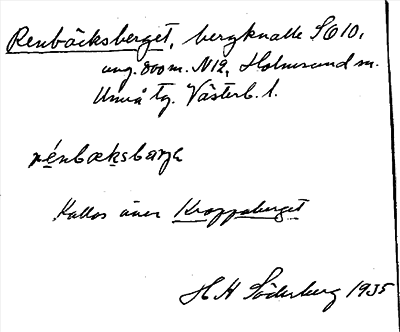 Renbäcksberget, bergknalle SO 10,
ung. 800 m. N 12, Holmsund sn.
Umeå tg. Västerb. l.
rénbæksbarjə
Kallas även Kroppberget
H H Söderberg 1935